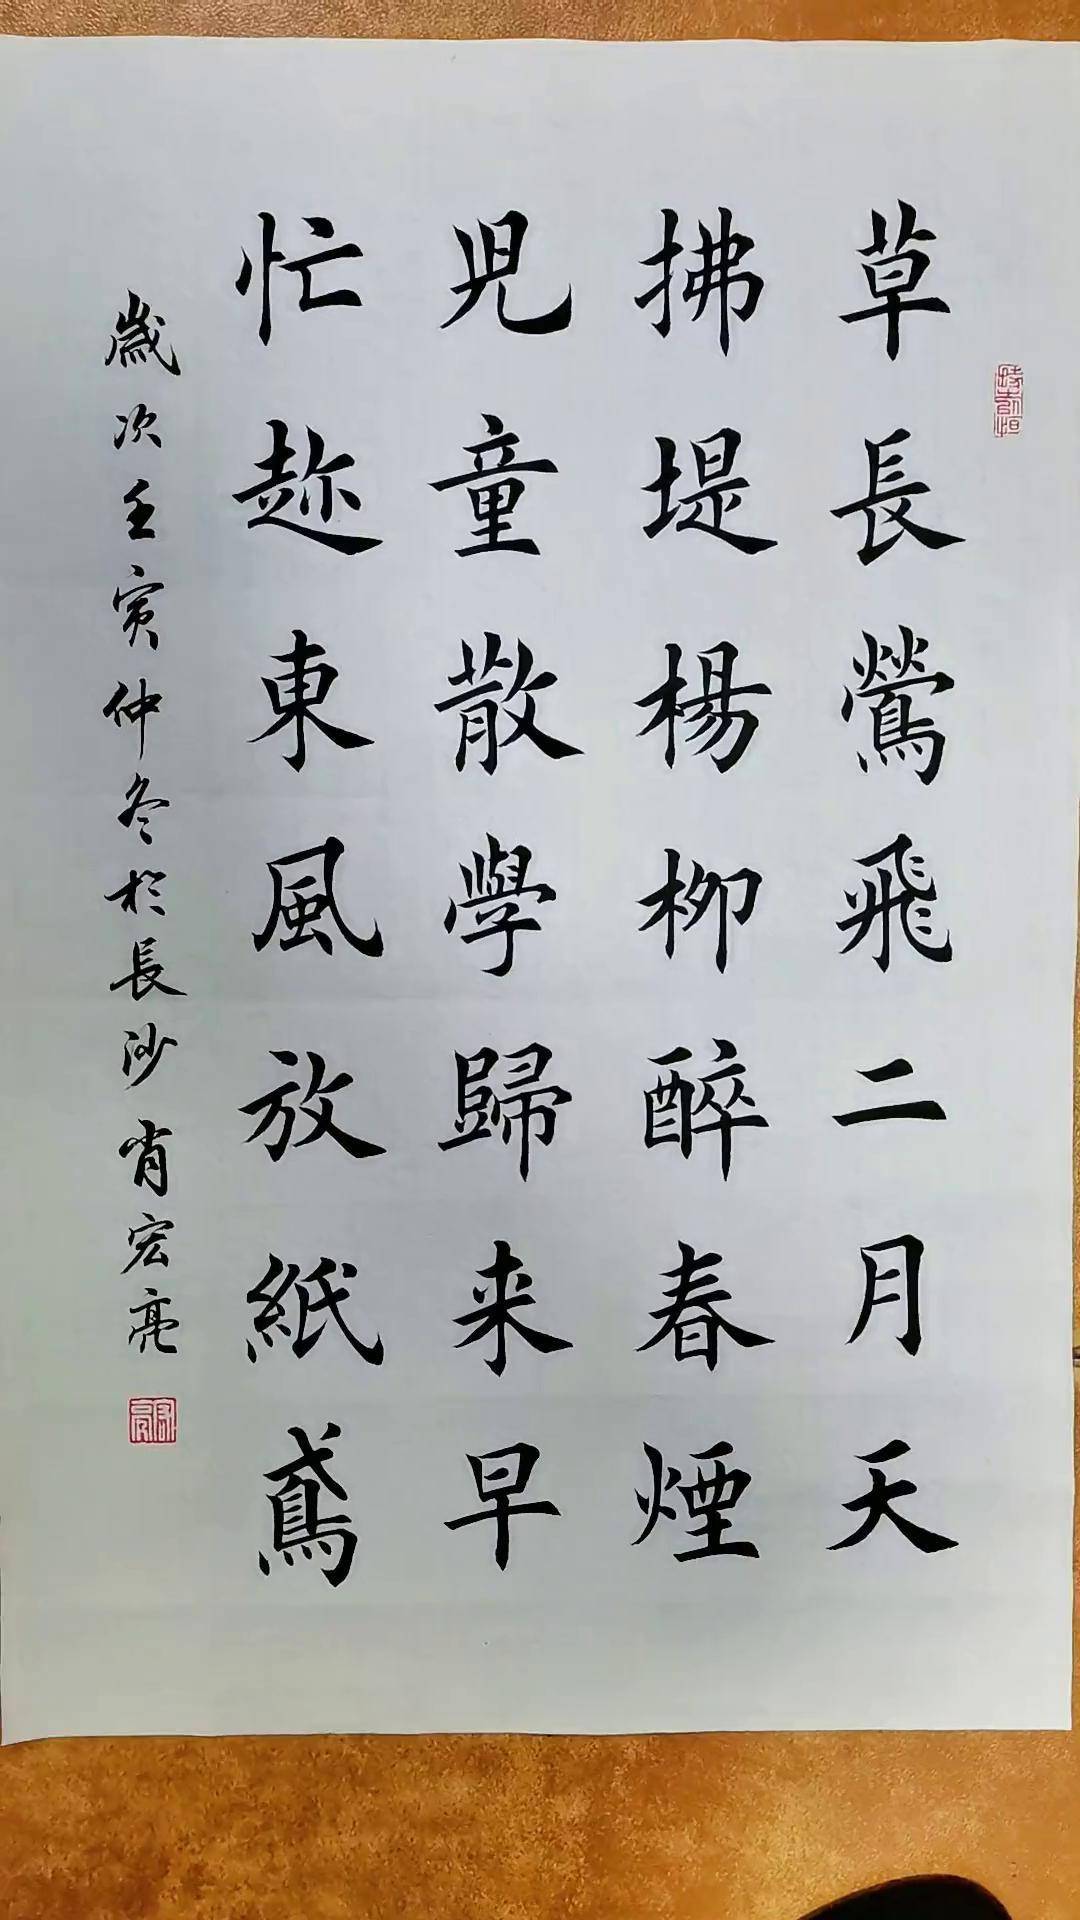 草長鶯飛二月天
拂堤楊柳醉春煙
児童散學歸来早
忙趂東風放紙鳶
歲次壬寅仲冬於長沙肖宏亮